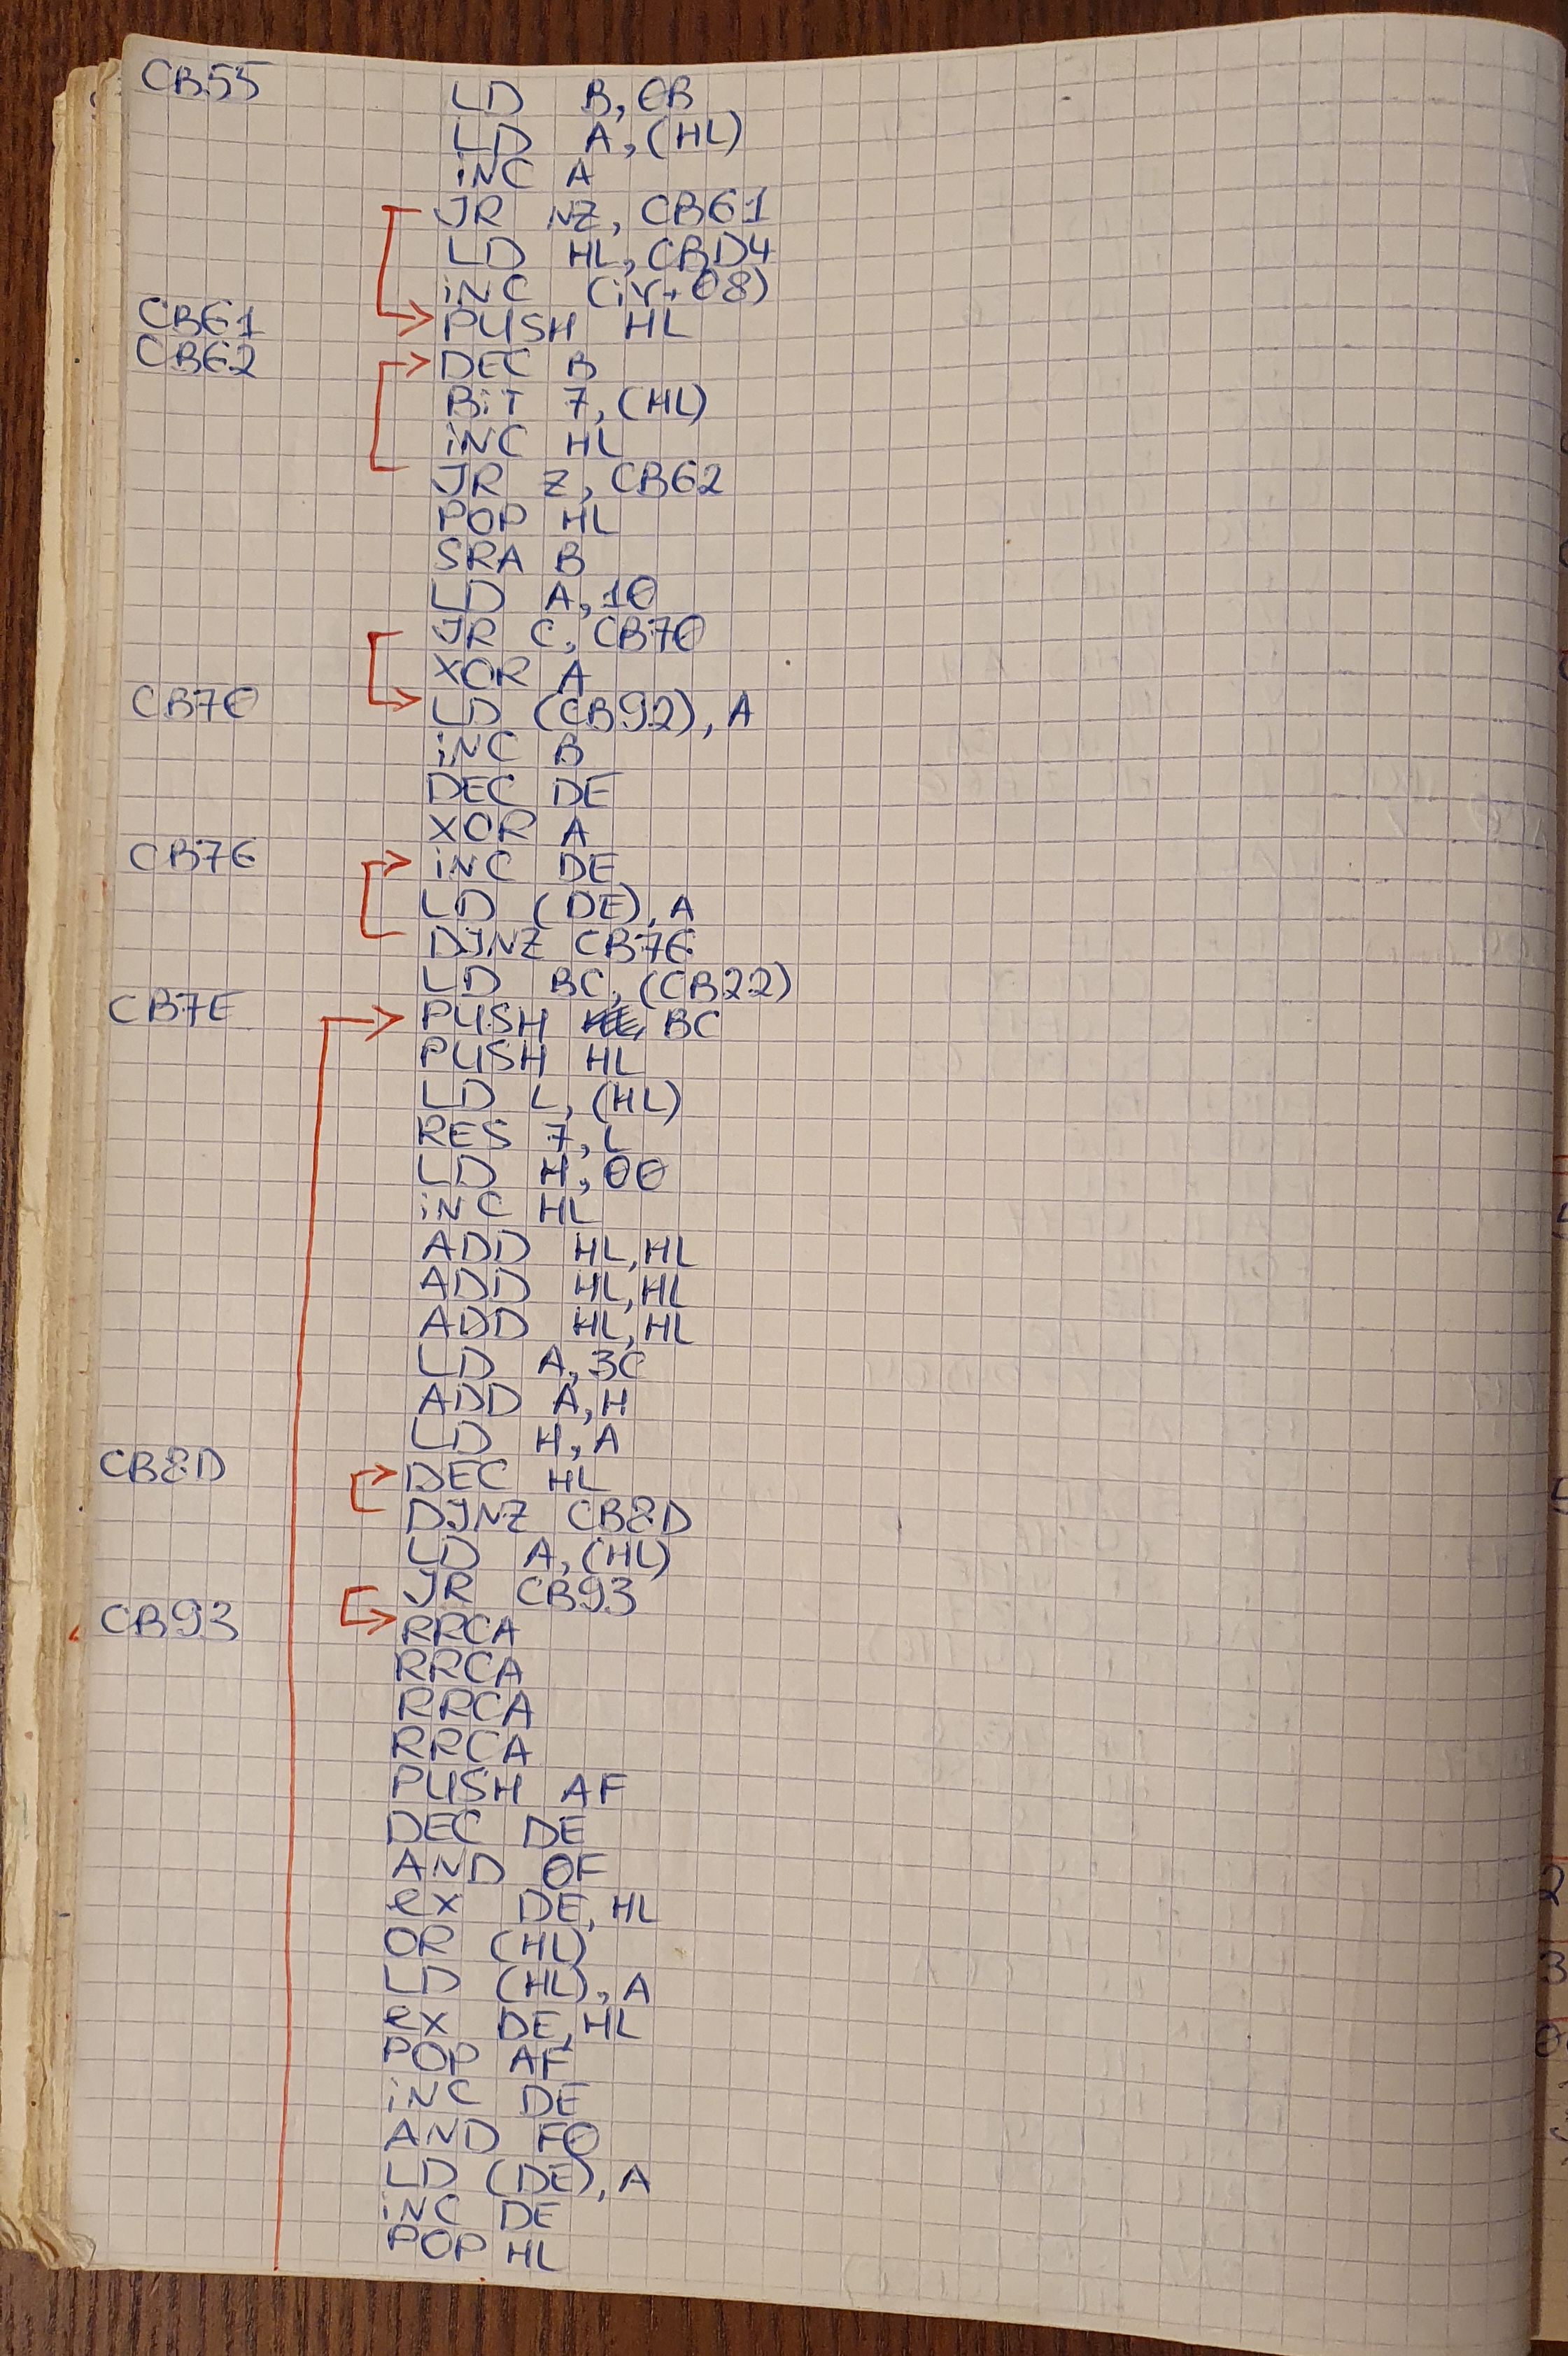 CB55 LD B,0B
LD A,(HL)
INC A
JR NZ, CB61
LD HL,CBD4
INC (IY+08)
CB61 PUSH HL
CB62 DEC B
BIT 7,(HL)
INC HL
JR Z, CB62
POP HL
SRA B
LD A,10
JR C, CB70
XOR A
CB70 LD (CB92), A
INC B
DEC DE
XOR A
CB76 INC DE
LD (DE), A
DJNZ CB76
LD BC, (CB22)
CB7E PUSH BC
PUSH HL
LD L, (HL)
RES 7, L
LD H, 00
INC HL
ADD HL,HL
ADD HL,HL
ADD HL,HL
LD A, 3C
ADD A,H
LD H, A
CB8D DEC HL
DJNZ CB8D
LD A, (HL)
JR CB93
CB93 RRCA
RRCA
RRCA
RRCA
PUSH AF
DEC DE
AND 0F
EX DE, HL
OR (HL)
LD (HL), A
EX DE, HL
POP AF
INC DE
AND F0
LD (DE), A
INC DE
POP HL